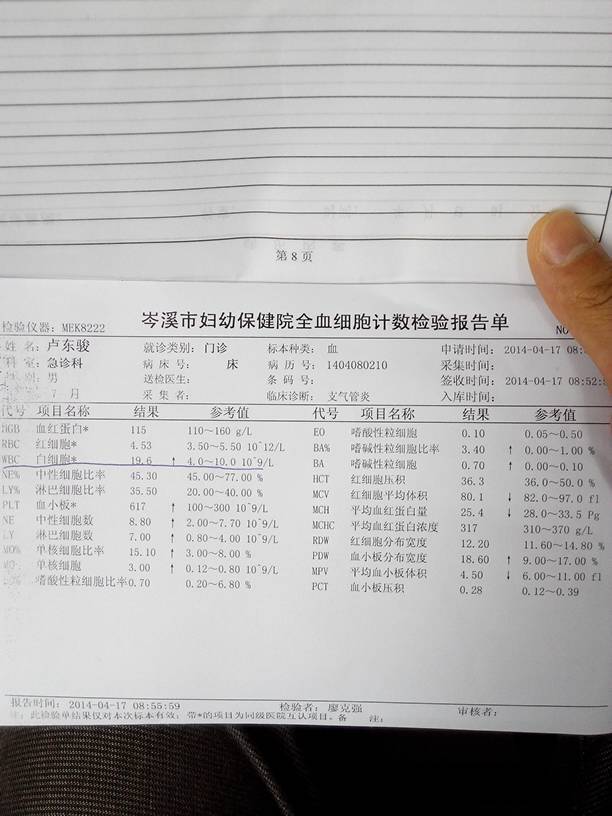 第 8 页
检验仪器：MEK8222 岑溪市妇幼保健院全血细胞计数检验报告单 NO
姓 名：卢东骏 就诊类别：门诊 标本种类：血 申请时间：2014-04-17 08:
科 室：急诊科 病 床 号： 床 病 历 号：1404080210 采集时间：
性 别：男 送检医生： 条 码 号： 签收时间：2014-04-17 08:52:
7 月 采 集 者： 临床诊断：支气管炎 入库时间：
代号 项目名称 结果 参考值 代号 项目名称 结果 参考值
HGB 血红蛋白* 115 110～160 g/L EO 嗜酸性粒细胞 0.10 0.05～0.50
RBC 红细胞* 4.53 3.50～5.50 10^12/L BA% 嗜碱性粒细胞比率 3.40 ↑ 0.00～1.00
WBC 白细胞* 19.6 ↑ 4.0～10.0 10^9/L BA 嗜碱性粒细胞 0.70 ↑ 0.00～0.10
NE% 中性细胞比率 45.30 45.00～77.00 % HCT 红细胞压积 36.3 36.0～50.0 %
LY% 淋巴细胞比率 35.50 20.00～40.00 % MCV 红细胞平均体积 80.1 ↓ 82.0～97.0 fl
PLT 血小板* 617 ↑ 100～300 10^9/L MCH 平均血红蛋白量 25.4 ↓ 28.0～33.5 Pg
NE 中性细胞数 8.80 ↑ 2.00～7.70 10^9/L MCHC 平均血红蛋白浓度 317 310～370 g/L
LY 淋巴细胞数 7.00 ↑ 0.80～4.00 10^9/L RDW 红细胞分布宽度 12.20 11.60～14.80 %
MO% 单核细胞比率 15.10 ↑ 3.00～8.00 % PDW 血小板分布宽度 18.60 ↑ 9.00～17.00 %
MO 单核细胞 3.00 ↑ 0.12～0.80 10^9/L MPV 平均血小板体积 4.50 ↓ 6.00～11.00 fl
嗜酸性粒细胞比率 0.70 0.20～6.80 % PCT 血小板压积 0.28 0.12～0.39
报告时间：2014-04-17 08:55:59 检验者：廖克强 审核者：
注：此检验单结果仅对本次标本有效；带*的项目为同级医院互认项目。备 注：